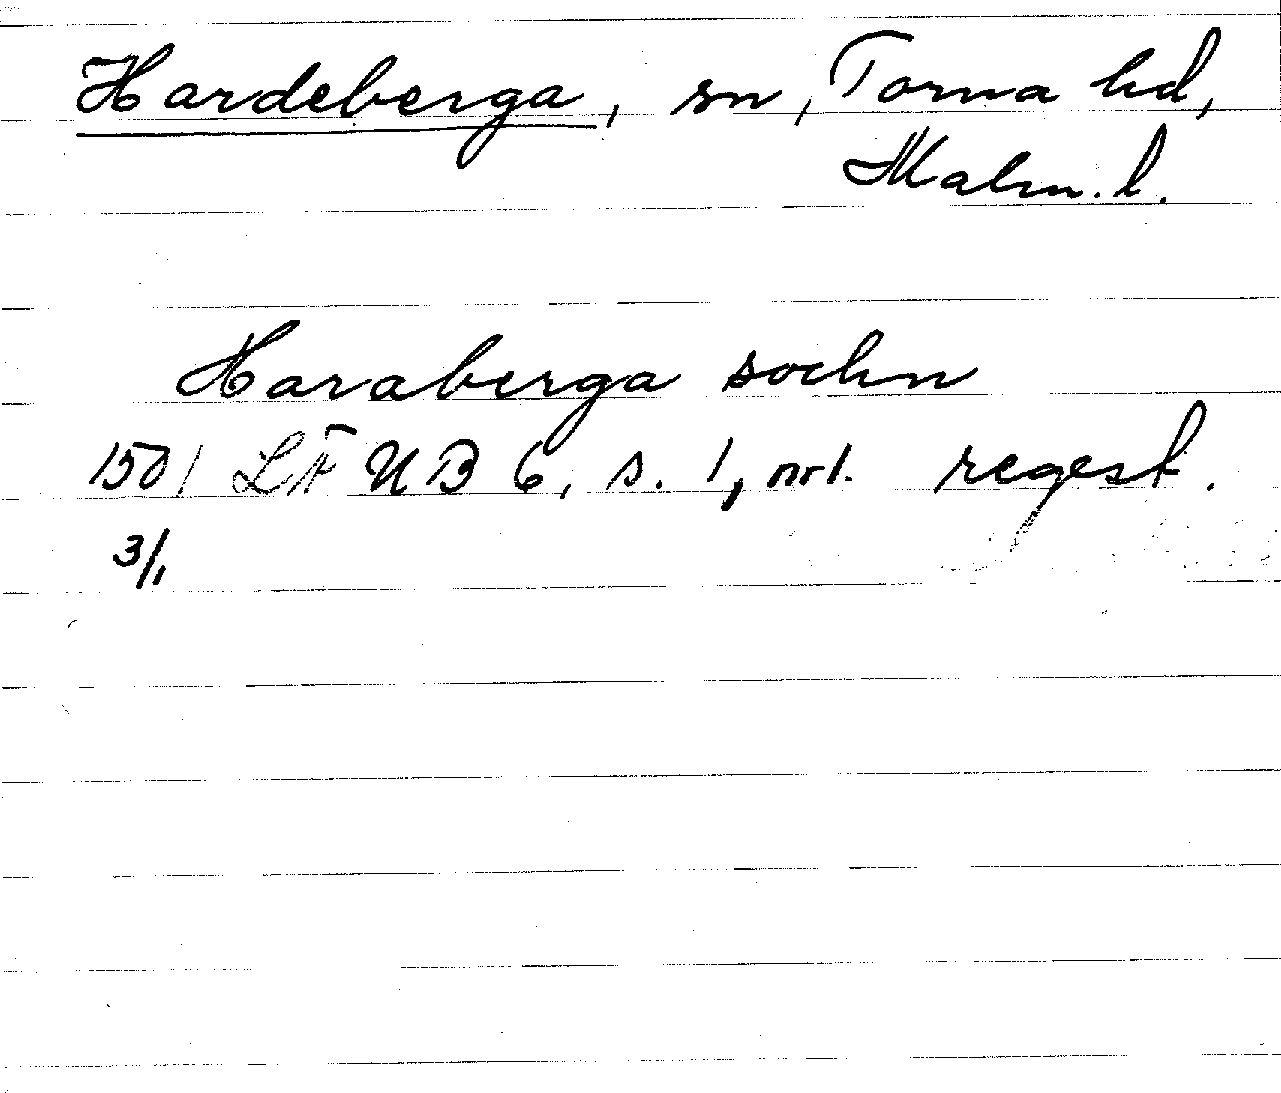 Hardeberga, sn, Torna hd,
Malm. l.
Haraberga sochn
1501 LÄUB 6, s. 1, nr 1. regest.
3/1